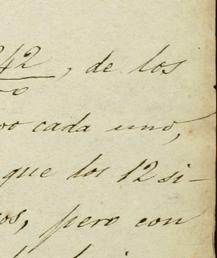 242, de los
cada uno,
que los 12 si-
pero con